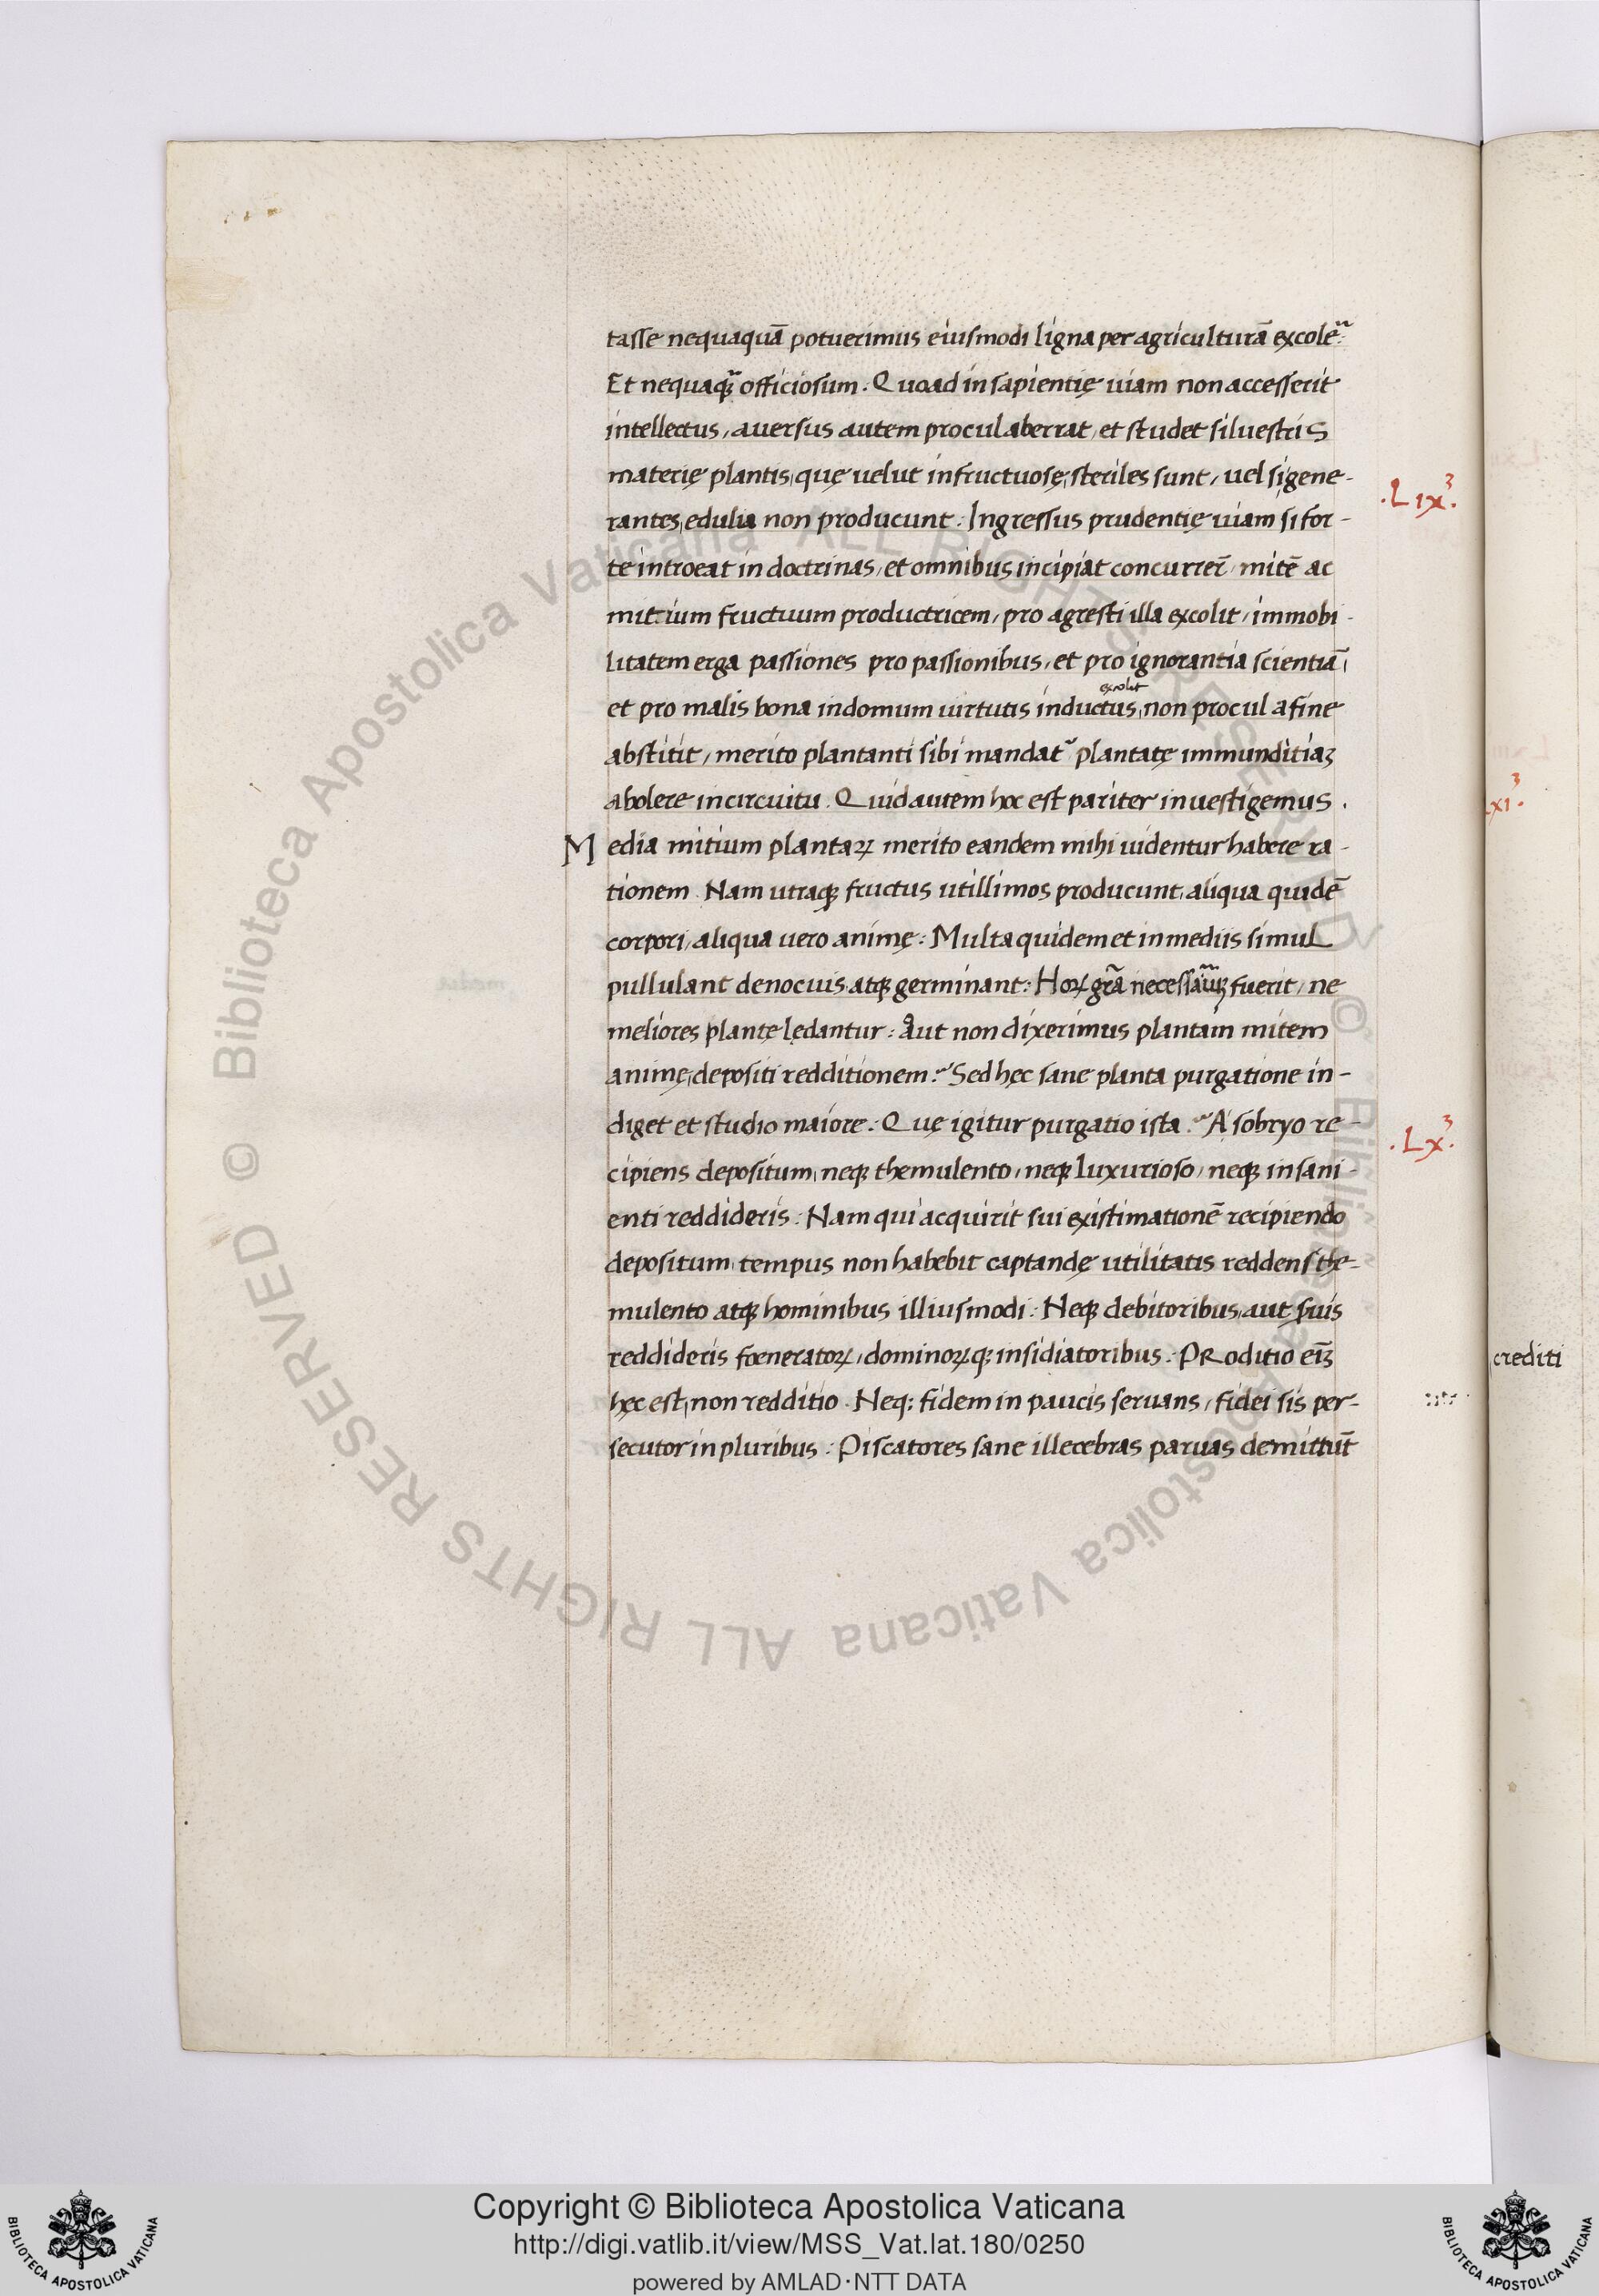 tasse nequaquā potuerimus eiusmodi ligna per agriculturā excoleᷓ:
Et nequaqᷓ officiosum. Quoad in sapientię uiam non accesserit
intellectus, auersus autem procul aberrat, et studet siluestris
materię plantis, quę uelut infructuosę, steriles sunt, uel si gene-
.Lix³.
rantes, edulia non producunt: Ingressus prudentię uiam si for-
te introeat in doctrinas, et omnibus incipiat concurrer̄, mitē ac
mitium fructuum productricem, pro agresti illa excolit, immobi-
litatem erga passiones pro passionibus, et pro ignorantia scientiā,
excolit
et pro malis bona in domum uirtutis inductus, non procul a fine
abstitit, merito plantanti sibi mandat᷑ plantatę immunditiaȝ
abolere in circuitu. Quid autem hoc est pariter inuestigemus.
Media mitium plantaꝝ merito eandem mihi uidentur habere ra-
tionem. Nam utraqꝫ fructus utillimos producunt, aliqua quidē
corpori, aliqua uero animę: Multa quidem et in mediis simul
pullulant de nocuis atqꝫ germinant: Hoꝝ gr̄a fuerit, ne
meliores plantę lędantur: Aut non dixerimus plantam mitem
animę, depositi redditionem: Sed hęc sane planta purgatione in-
diget et studio maiore: Quę igitur purgatio ista. A sobryo re-
.Lx³.
cipiens depositum, neqꝫ themulento, neqꝫ luxurioso, neqꝫ insani-
enti reddideris: Nam qui acquirit sui existimationē recipiendo
depositum, tempus non habebit captandę utilitatis reddens the-
mulento atqꝫ hominibus illiusmodi: Neqꝫ debitoribus, aut suis
reddideris foeneratoꝝ, dominoꝝqꝫ insidiatoribus: Proditio eīȝ
hęc est, non redditio. Neq; fidem in paucis seruans, fidei sis per-
secutor in pluribus: Piscatores sane illecebras paruas demittūt
xi³.
crediti
© Biblioteca Apostolica Vaticana ALL RIGHTS RESERVED © Biblioteca Apostolica Vaticana ALL RIGHTS RESERVED
Copyright © Biblioteca Apostolica Vaticana
http://digi.vatlib.it/view/MSS_Vat.lat.180/0250
powered by AMLAD·NTT DATA
BIBLIOTECA APOSTOLICA VATICANA
BIBLIOTECA APOSTOLICA VATICANA